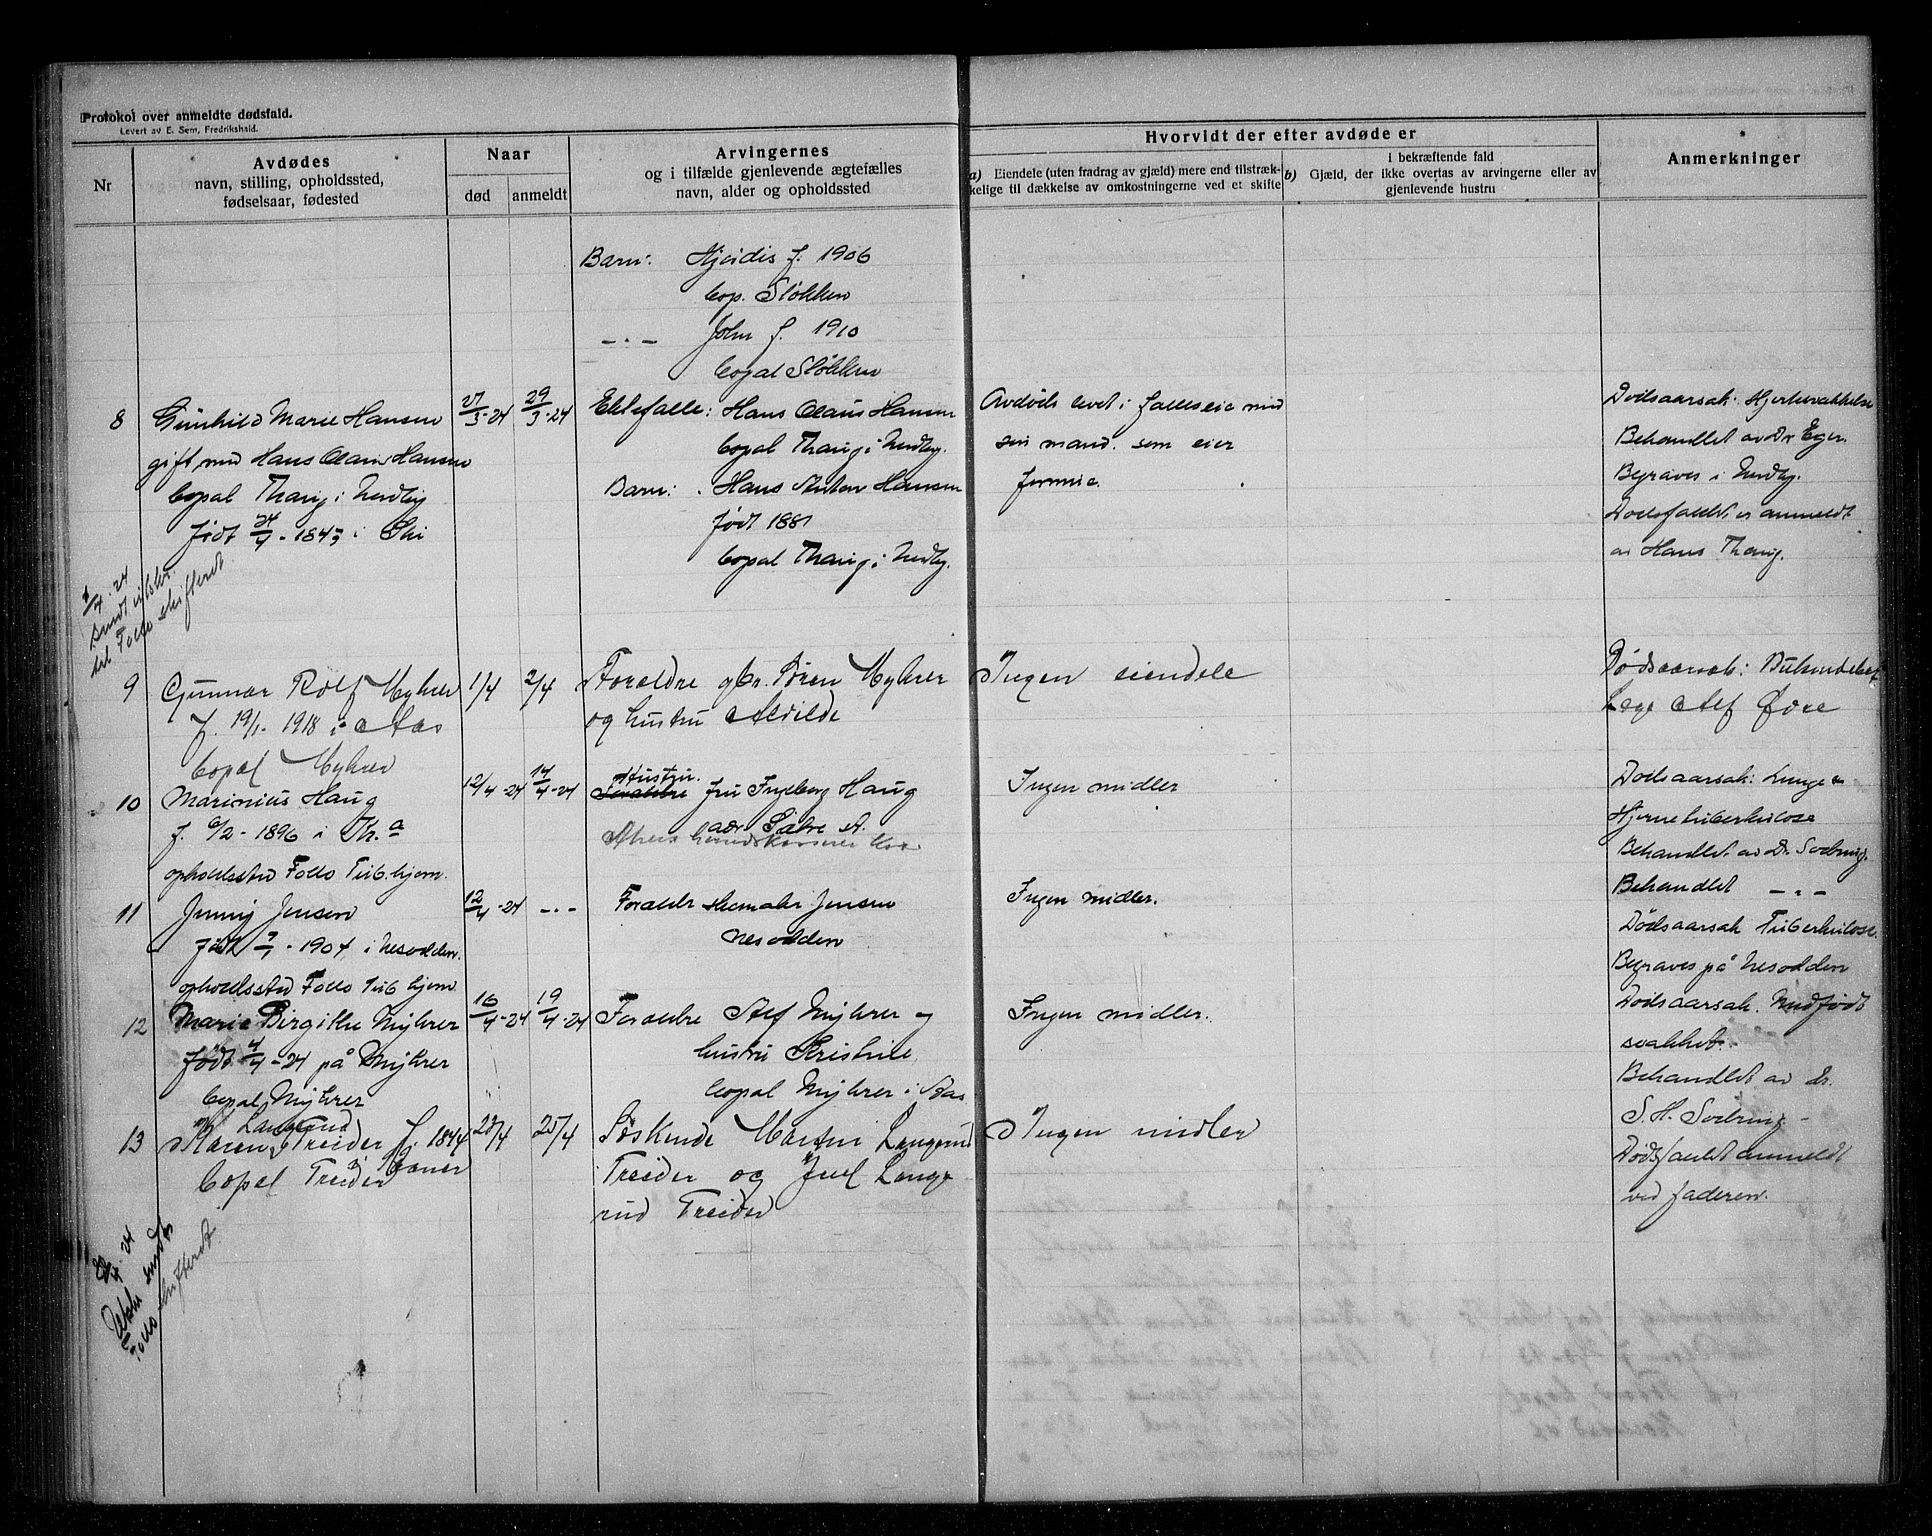 Protokol over anmeldte dødsfald.
Levert av E. Sem, Fredrikshald.
Nr
Avdødes
navn, stilling, opholdssted,
fødselsaar, fødested
Naar
død
anmeldt
Arvingernes
og i tilfælde gjenlevende ægtefælles
navn, alder og opholdssted
Hvorvidt der efter avdøde er
a) Eiendele (uten fradrag av gjæld) mere end tilstræk-
kelige til dækkelse av omkostningerne ved et skifte
b)
i bekræftende fald
Gjæld, der ikke overtas av arvingerne eller av
gjenlevende hustru
Anmerkninger
Barn: Hjördis f. 1906
Cop. Støkken
-"- John f. 1910
Copal Støkken
8
Gunhild Marie Hansen
gift med Hans Claus Hansen
Copal Thaug i Nedby
født 24/4 - 1843 i Ski
27/3-24
29/3-24
Ektefælle: Hans Claus Hansen
Copal Thaug i Nedby.
Barn: Hans Anton Hansen
født 1881
Copal Thaug i Nedby.
Avdøde levet i fælleseie med
sin mand. som eier
formue.
Dødsaarsak: Hjertesvakkelse
Behandlet av Dr Eger.
Begraves i Nedby.
Dødsfaldet er anmeldt
av Hans Thaug.
1/4 - 24
sendt utskr.
til Follo skifterett
9
Gunnar Rolf Myhrer
f. 19/1. 1918 i Aas
Copal Myhrer
1/4
2/4
Foraldre gbr. Søren Myhrer
og hustru Alvilde
Ingen eiendele
Dødsaarsak:
Læge Alf Øvre
10
Marinius Haug
f. 6/2 - 1896 i Kr.a
opholdssted Follo Tub.hjem.
12/4-24
14/4-24
Hustru
Foraldre fru Ingeborg Haug
adr. Sætre
Ingen midler
Dødsaarsak: Lunge &
Hjernetuberkulose
Behandlet av Dr. Sodring.
11
Jenny Jensen
født 9/1 - 1904 i Nesodden.
opholdssted Follo Tub hjem
12/4-24
-"-
Foraldr Jensen
Nesodden
Ingen midler.
Behandlet -"-
Dødsaarsak Tuberkulose.
Begraves på Nesodden
12
Marie Birgithe Myhrer
født 4/4 - 24 på Myhrer
Copal Myhrer
16/4-24
19/4-24
Foraldre Alf Myhrer og
hustru Kristine
Copal Myhrer i Aas
Ingen midler.
Dødsaarsak. Medfødt
svakhet.
Behandlet av dr.
S. H. Sodring -
Dødsfaldet anmeldt
ved faderen.
13
Langerud
Karen Treider f. 1844
Copal Treider
23/4
25/4
Søskende Martin Langerud
Treider og Juel Lange
rud Treider
Ingen midler
24
Utskr sendt
Follo skifterett